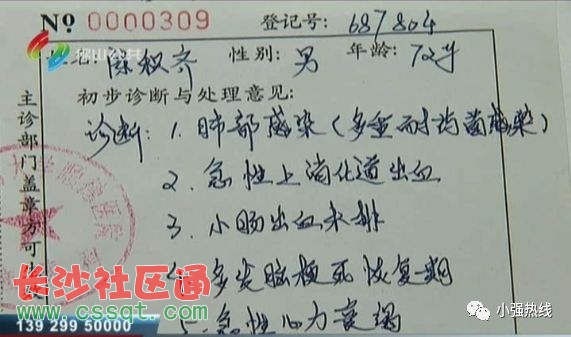 № 0000309 登记号: 687804
佛山公共
姓名: 陈叙齐 性别: 男 年龄: 72岁
初步诊断与处理意见:
诊断: 1. 肺部感染(多重耐药菌感染)
2. 急性上消化道出血
3. 小肠出血未排
4. 多发脑梗死恢复期
5. 急性心力衰竭
主诊部门盖章方可
长沙社区通
www.cssqt.com
139 299 50000
小强热线